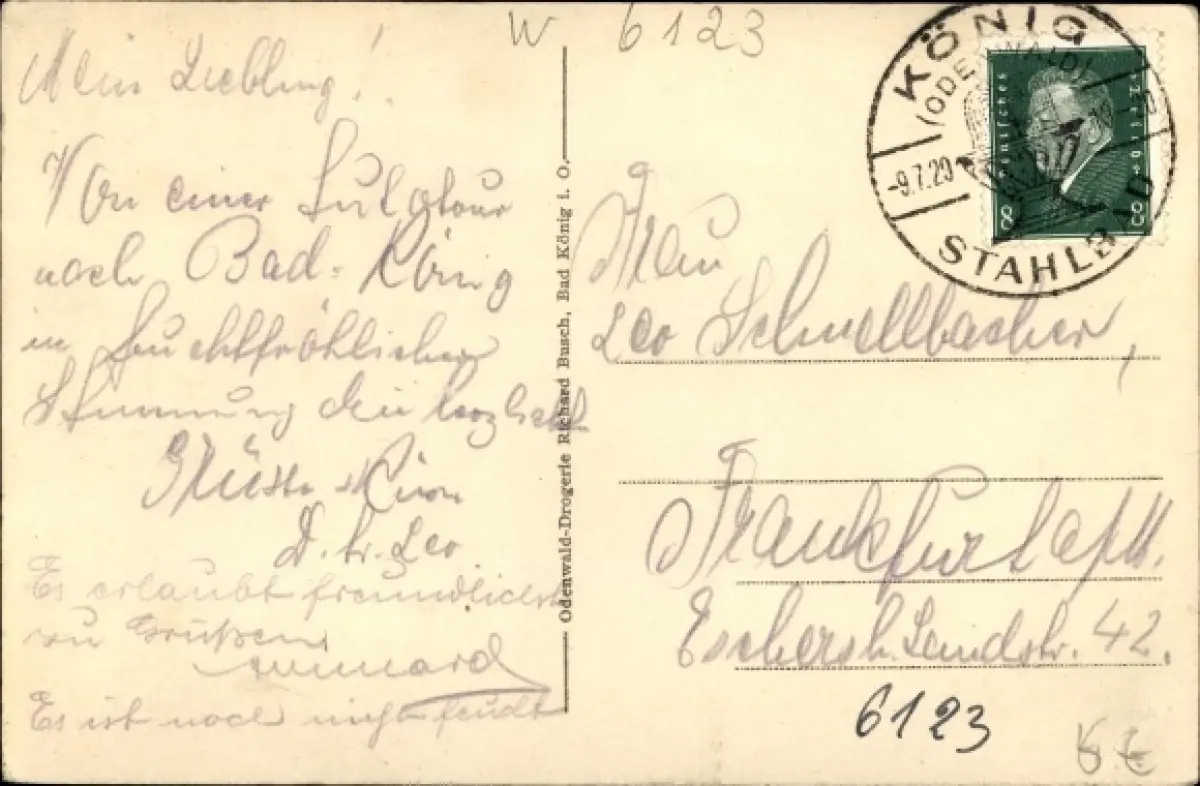 W 6123
Mein Liebling!
Von einer Autotour
nach Bad-König
in feuchtfröhlicher
Stimmung die herzlichst
Grüsse
D. tr. Leo
Es erlaubt freundlichst
zu Grüßen
Es ist noch nicht feucht
Odenwald-Drogerie Richard Busch, Bad König i. O.
KÖNIG
(ODENWALD)
-9.7.29
STAHLBAD
Deutsches Reich
8 8
Frau
Leo Schnellbacher,
Frankfurt a/M.
Eschersh. Landstr. 42.
6123